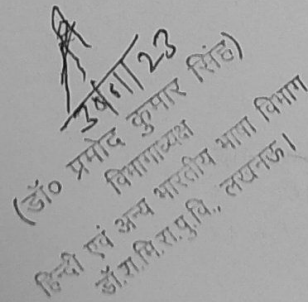 (डॉ० प्रमोद कुमार सिंह)
विभागाध्यक्ष
हिन्दी एवं अन्य भारतीय भाषा विभाग
डॉ.रा.मि.रा.पु.वि., लखनऊ।